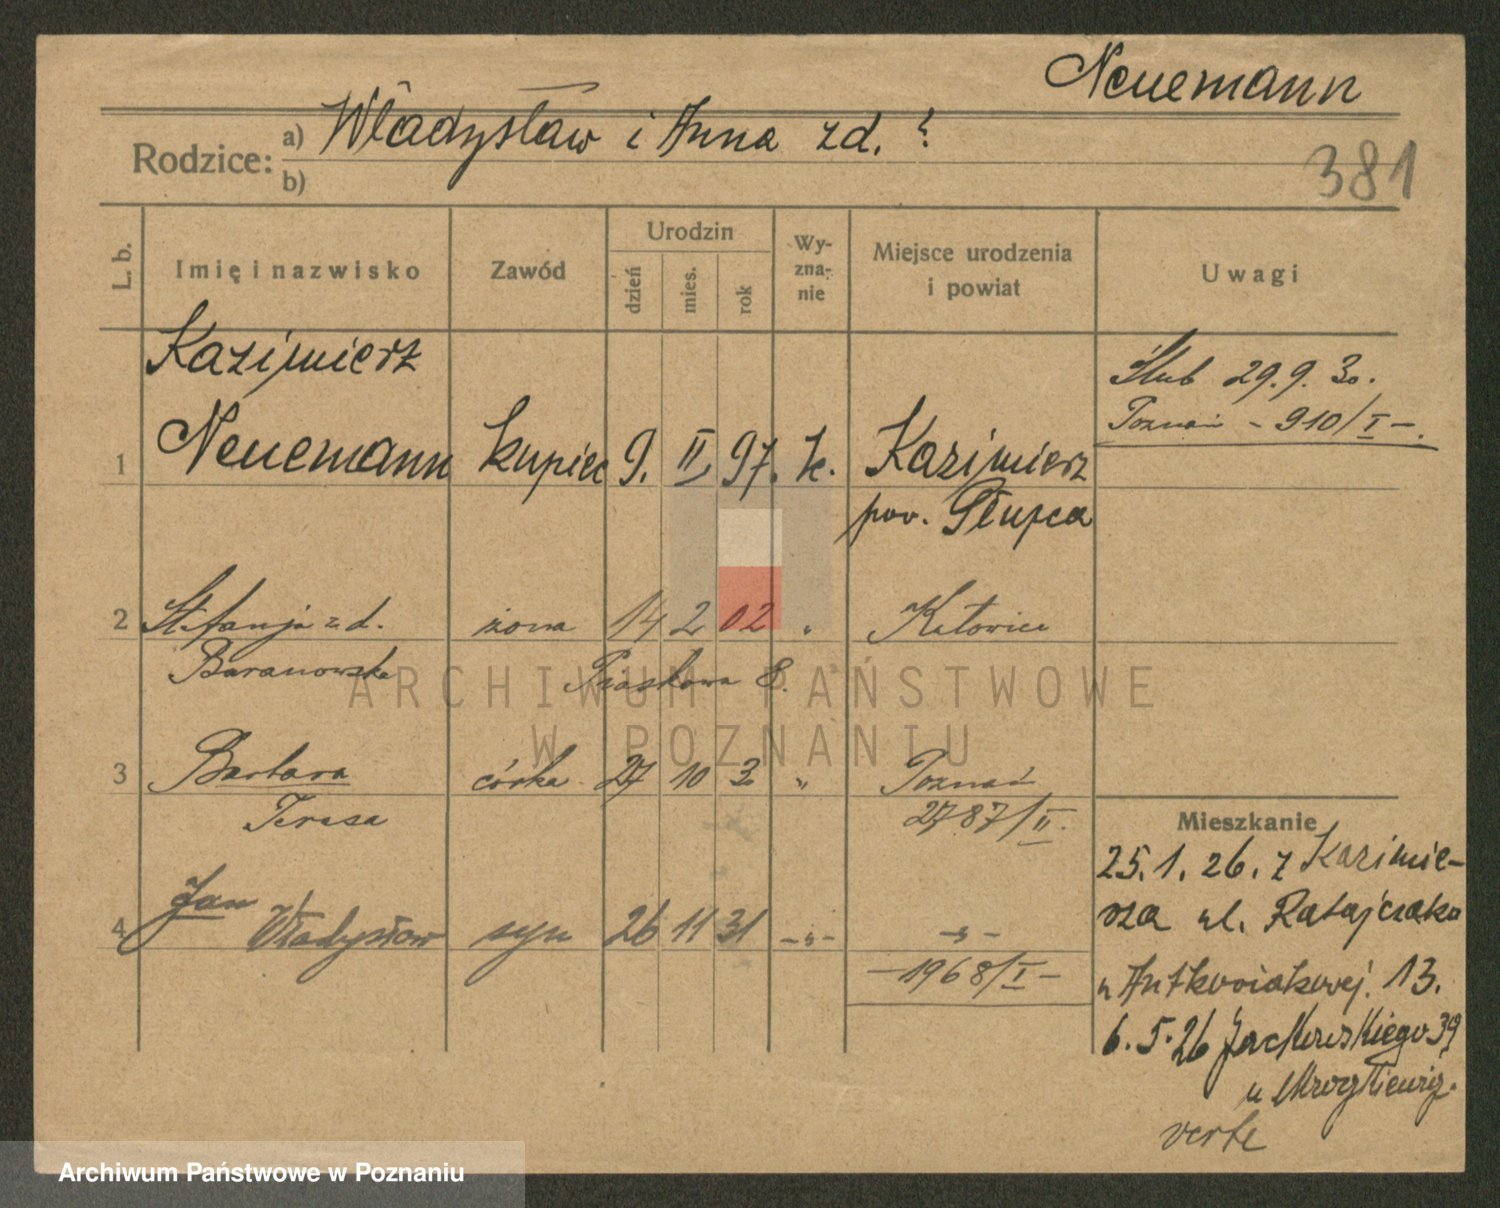 Neuemann
Rodzice:
a) Władysław i Anna zd. ?
b)
381
L. b.
Imię i nazwisko
Zawód
Urodzin
dzień
mies.
rok
Wy-
zna-
nie
Miejsce urodzenia
i powiat
Uwagi
Kazimierz
1 Neuemann kupiec 9. II 97. k. Kazimierz
pow. Słupca
Ślub 29.9.30.
Poznań - 910/I -.
2 Stefanja z d. żona 14 2 02 " Katowice
Baranowska
Piaskowa 8.
3 Barbara córka 27 10 2 " Poznań
Teresa 2787/II.
4 Jan Władysław syn 26 11 31 -"- -"-
- 1968/I -
Mieszkanie
25.1.26. z Kazimie-
rza ul. Ratajczaka
u Antkowiakowej. 13.
6.5.26 Jackowskiego 39
u
verte
ARCHIWUM PAŃSTWOWE
W POZNANIU
Archiwum Państwowe w Poznaniu